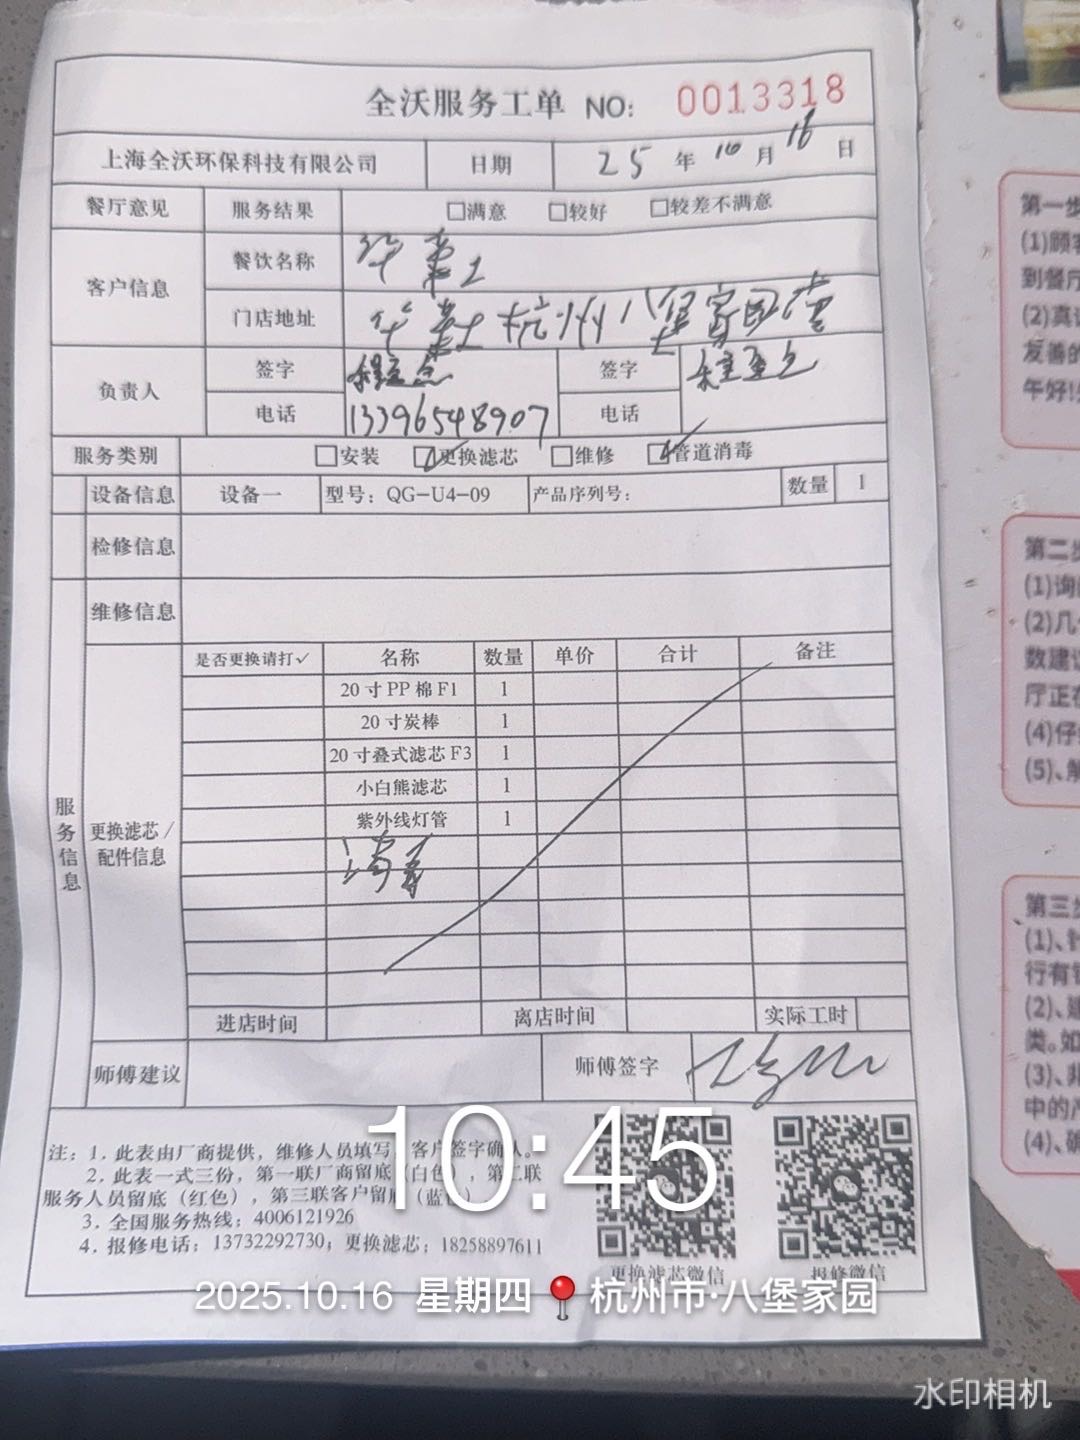 全沃服务工单 NO: 0013318
上海全沃环保科技有限公司 日期 25 年 10 月 16 日
餐厅意见 服务结果 □满意 □较好 □较差不满意
客户信息 餐饮名称 华莱士
门店地址 华莱士杭州八堡家园店
负责人 签字 签字
电话 13396548907 电话
服务类别 □安装 ☑更换滤芯 □维修 ☑管道消毒
设备信息 设备一 型号: QG-U4-09 产品序列号: 数量 1
检修信息
维修信息
是否更换请打✓ 名称 数量 单价 合计 备注
20 寸 PP 棉 F1 1
20 寸炭棒 1
20 寸叠式滤芯 F3 1
小白熊滤芯 1
紫外线灯管 1
消毒
服务信息
更换滤芯/
配件信息
进店时间 离店时间 实际工时
师傅建议 师傅签字
注: 1. 此表由厂商提供, 维修人员填写, 客户签字确认。
2. 此表一式三份, 第一联厂商留底 (白色), 第二联
服务人员留底 (红色), 第三联客户留底 (蓝色)
3. 全国服务热线: 4006121926
4. 报修电话: 13732292730; 更换滤芯: 18258897611
更换滤芯微信 报修微信
10:45
2025.10.16 星期四 杭州市·八堡家园
水印相机
第一步
(1)顾客
到餐厅
(2)真
友善的
午好!
第二步
(1)询
(2)几
数建议
厅正在
(4)仔
(5)、解
第三步
(1)、
行有
(2)、
类。如
(3)、非
中的
(4)、确